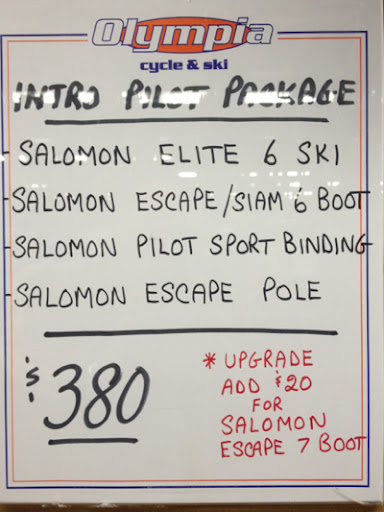 Olympia
cycle & ski
INTRO PILOT PACKAGE
- SALOMON ELITE 6 SKI
- SALOMON ESCAPE/SIAM 6 BOOT
- SALOMON PILOT SPORT BINDING
- SALOMON ESCAPE POLE
$380
* UPGRADE
ADD $20
FOR
SALOMON
ESCAPE 7 BOOT